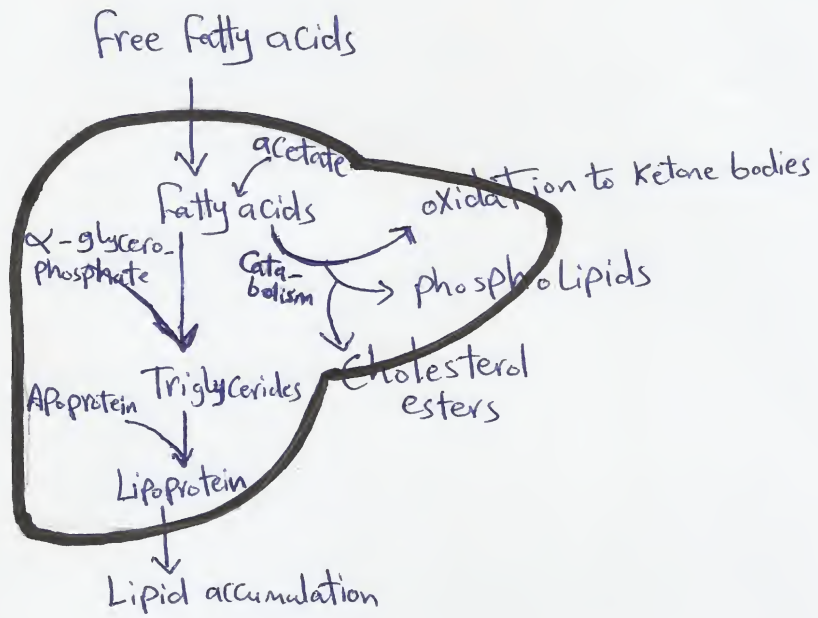 Free fatty acids
acetate
Fatty acids
oxidation to Ketone bodies
α-glycero-
phosphate
Cata-
bolism
phospholipids
Triglycerides
Cholesterol
esters
Apoprotein
Lipoprotein
Lipid accumulation